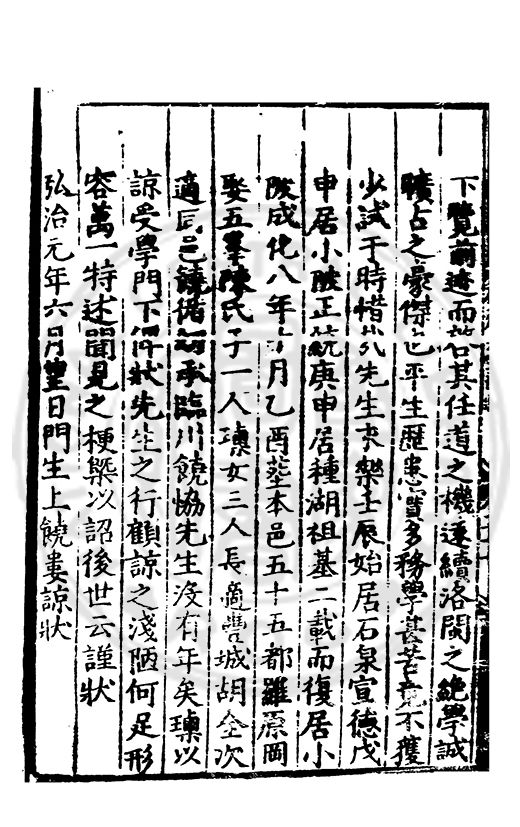 下覽前迹而若其任道之機遠續洛閩之絕學誠
曠古之豪傑也平生歷患實多務學甚苦竟不獲
少試于時惜哉先生永樂壬辰始居石泉宣德戊
申居小陂正統庚申居種湖祖基二載而復居小
陂成化八年十月乙酉塟本邑五十五都羅原岡
娶五峯陳氏子一人㻞女三人長適豐城胡全次
適同邑饒循初承臨川饒協先生沒有年矣㻞以
諒受學門下俾狀先生之行顧諒之淺陋何足形
容萬一特述聞見之梗槩以詔後世云謹狀
弘治元年六月望日門生上饒婁諒狀